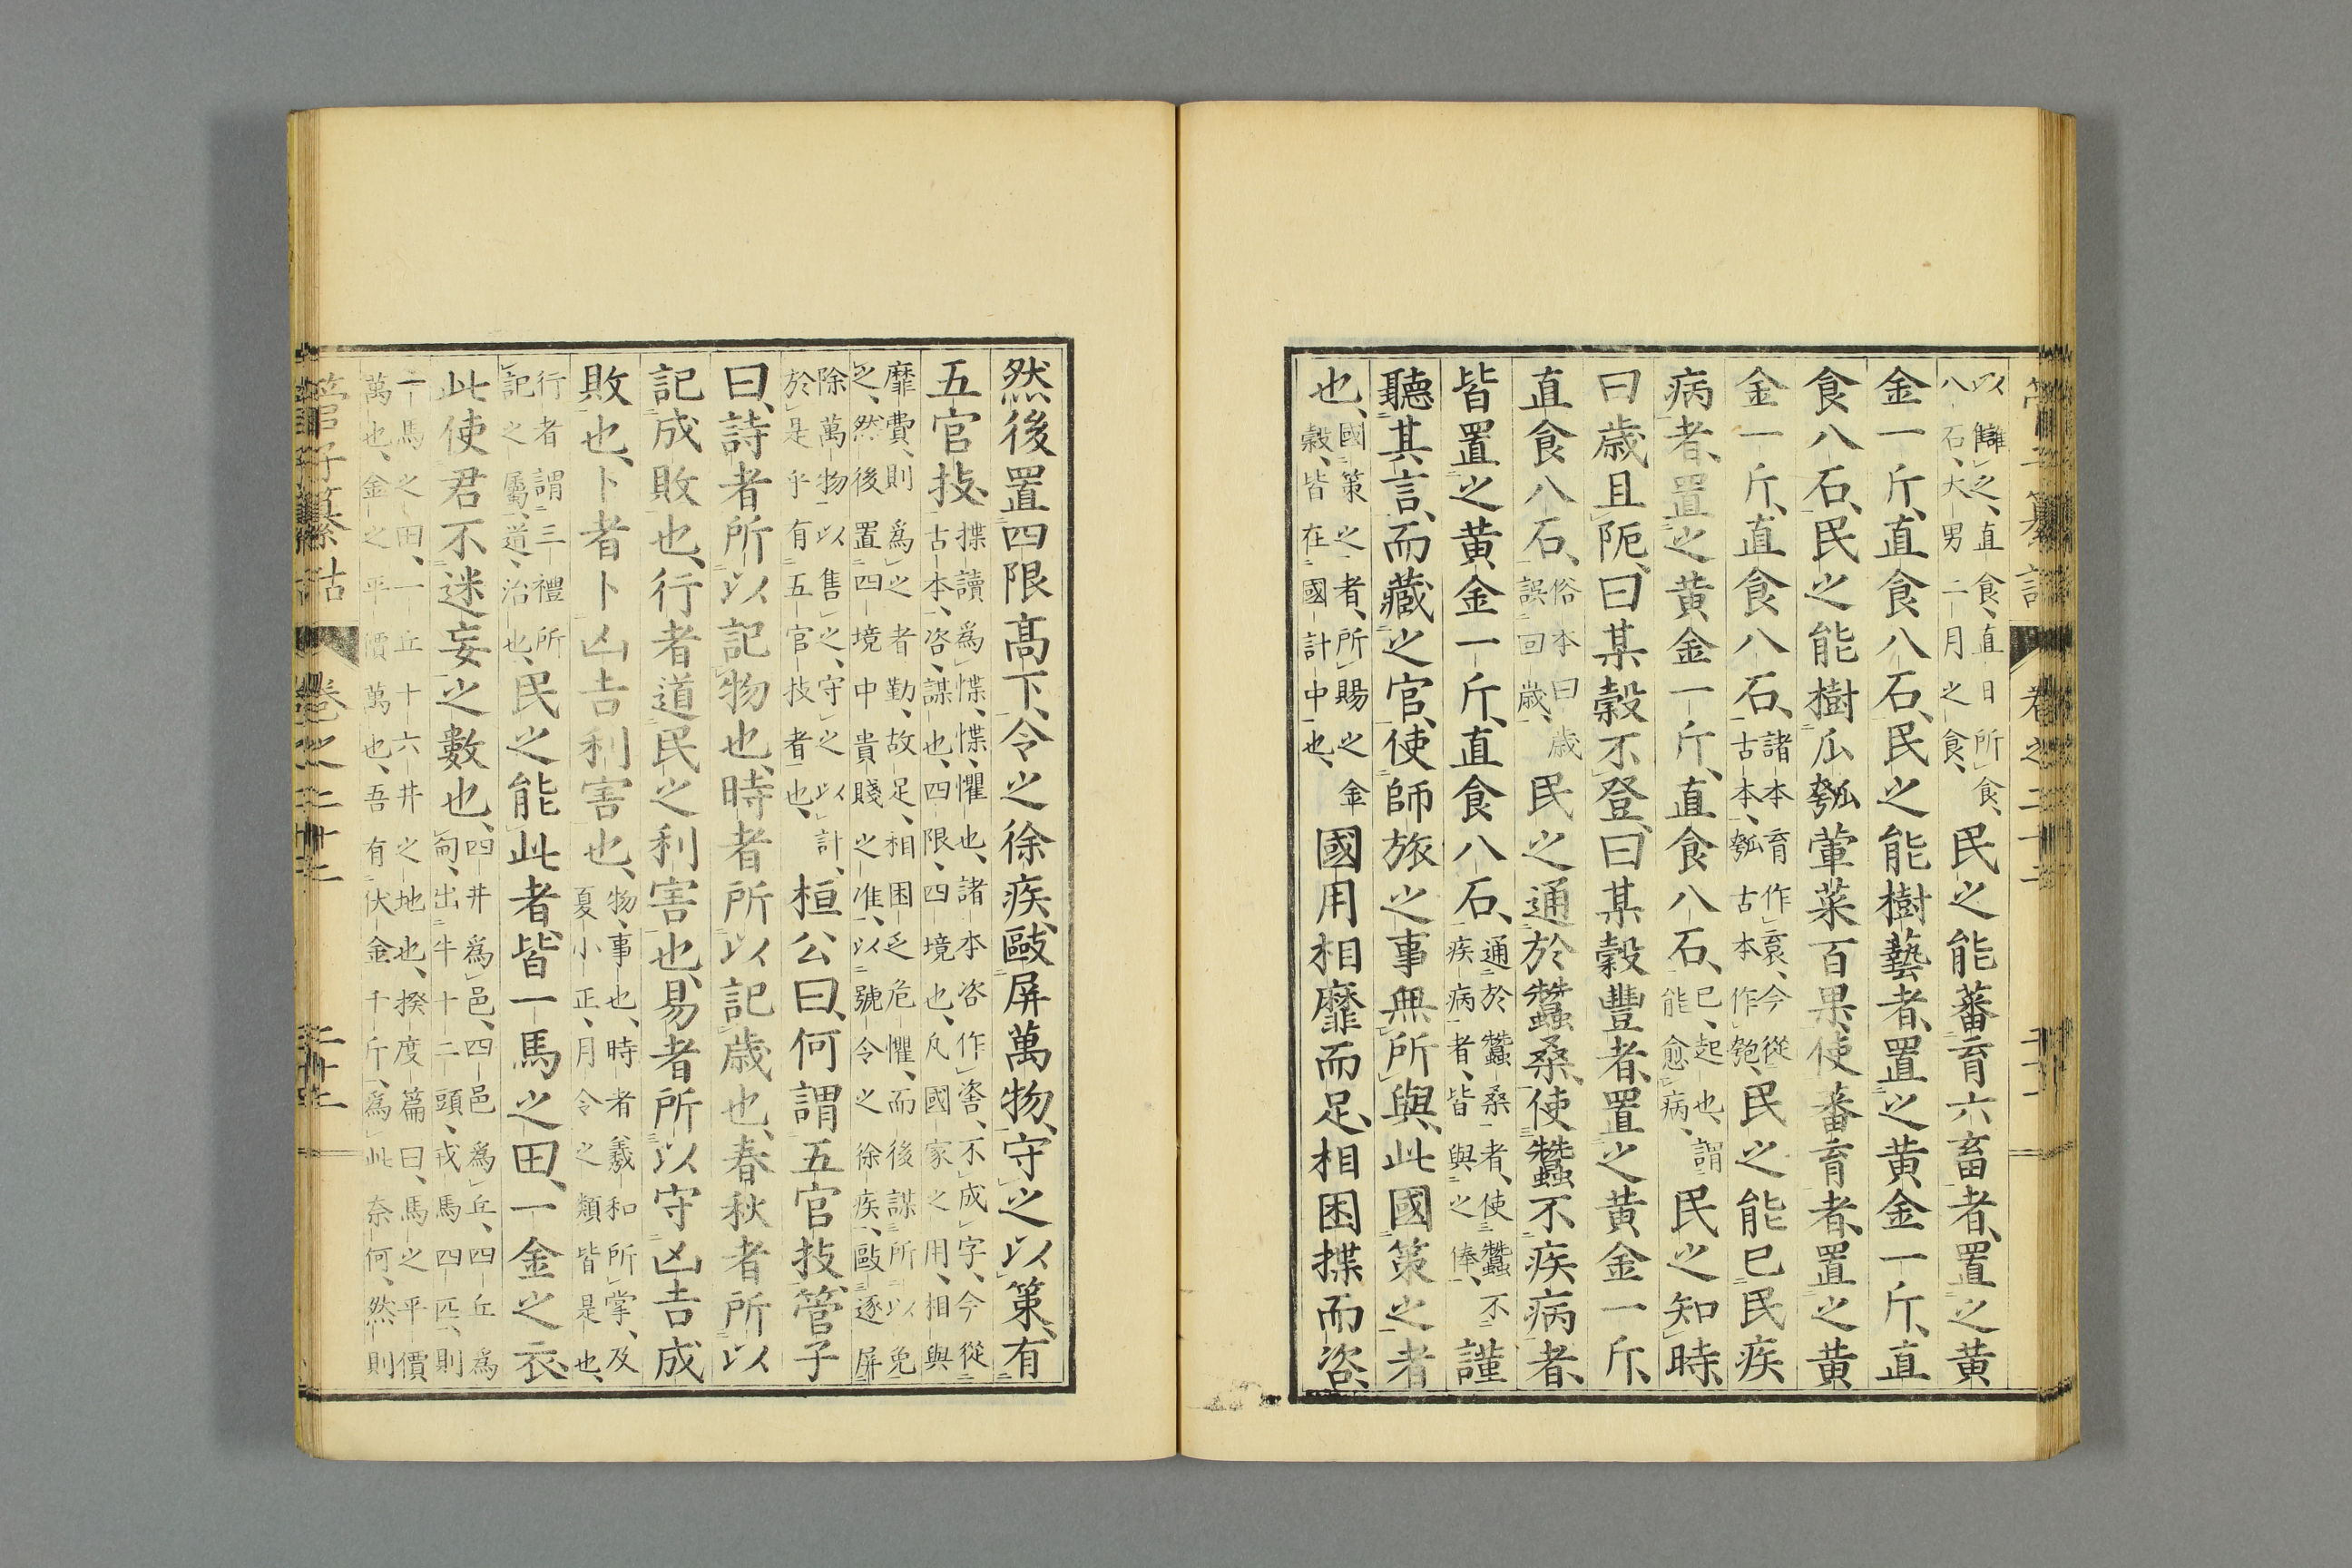 管子纂詁 卷之二十二
以讎之、直食、直日所食、八石、大男二月之食、民之能蕃育六畜者、置之黃
金一斤、直食八石、民之能樹藝者、置之黃金一斤、直
食八石、民之能樹瓜瓠葷菜百果、使蕃育者、置之黃
金一斤、直食八石、諸本育作袬、今從古本、瓠古本作匏、民之能已民疾
病者、置之黃金一斤、直食八石、已、起也、謂能愈病、民之知時、
曰歲且阨、曰某穀不登、曰某穀豐者、置之黃金一斤、
直食八石、俗本曰歲誤回歲、民之通於蠶桑、使蠶不疾病者、
皆置之黃金一斤、直食八石、通於蠶桑者、使蠶不疾病者、皆與之俸、謹
聽其言、而藏之官、使師旅之事無所與、此國策之者
也、國策之者、所賜之金穀、皆在國計中也、國用相靡而足、相困揲而㳄、
然後置四限高下、令之徐疾、敺屏萬物、守之以策、有
五官技、揲讀爲惵、惵、懼也、諸本咨作㗉、不成字、今從古本、咨、謀也、四限、四境也、凡國家之用、相與
靡費、則爲之者勤、故足、相困乏危懼、而後謀所以免之、然後置四境中貴賤之准、以號令之徐疾、敺逐屏
除萬物以售之、守之以計、於是乎有五官技者也、桓公曰、何謂五官技、管子
曰、詩者所以記物也、時者所以記歲也、春秋者所以
記成敗也、行者道民之利害也、易者所以守凶吉成
敗也、卜者卜凶吉利害也、物、事也、時者羲和所掌、及夏小正、月令之類皆是也、
行者謂三禮所記之屬、道、治也、民之能此者、皆一馬之田、一金之衣、
此使君不迷妄之數也、四井爲邑、四邑爲丘、四丘爲甸、出牛十二頭、戎馬四匹、則
一馬之田、一丘十六井之地也、揆度篇曰、馬之平價萬也、金之平價萬也、吾有伏金千斤、爲此奈何、然則
管子纂詁 卷之二十二